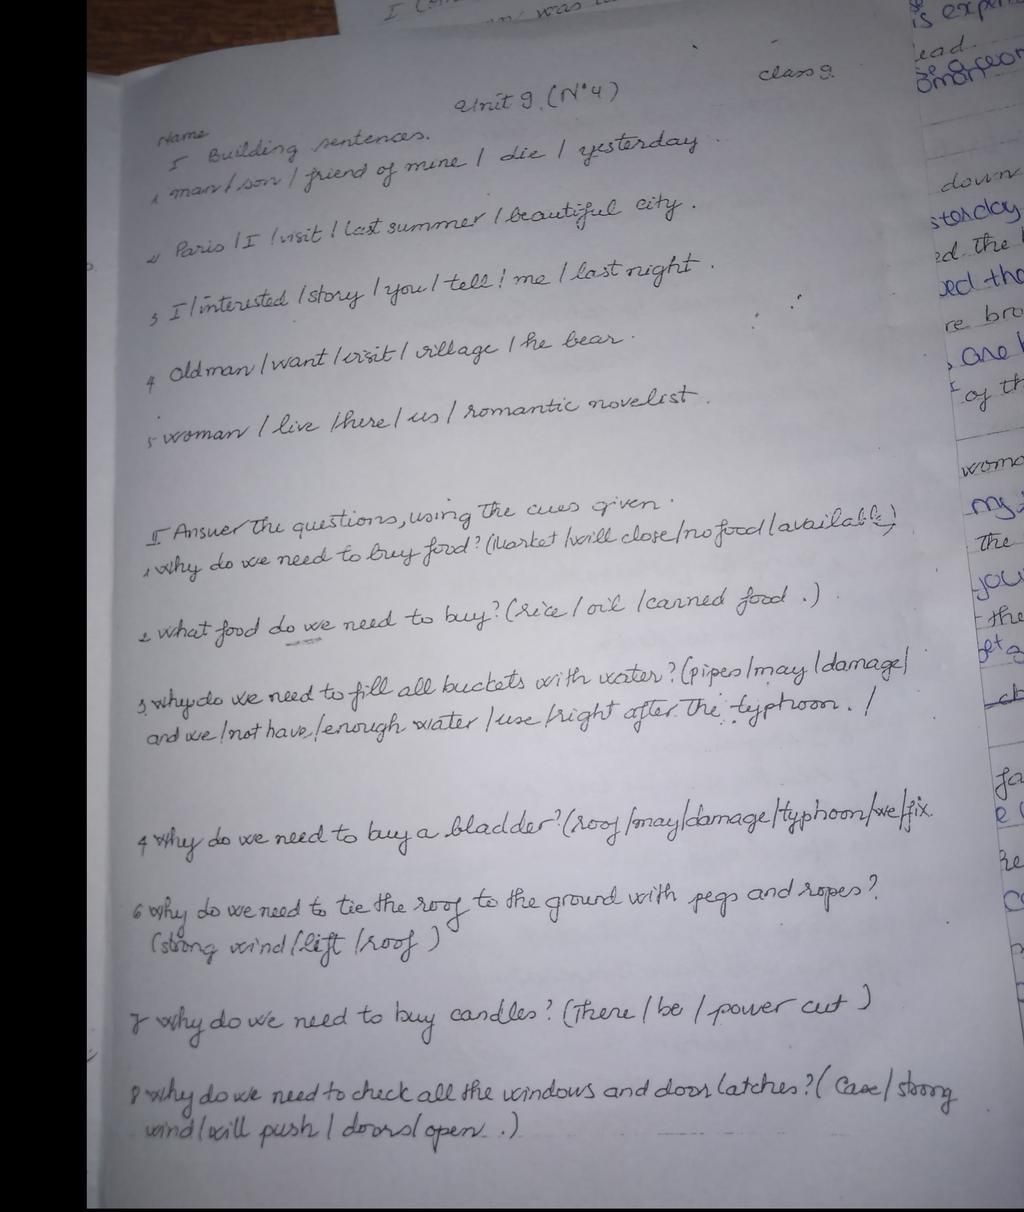 is expen
I
was
ead
class 9
Unit 9 (N°4)
Name
I Building sentences.
1 man / son / friend of mine / die / yesterday
2 Paris / I / visit / last summer / beautiful city.
3 I / interested / story / you / tell / me / last night.
4 old man / want / visit / village / he bear.
5 woman / live / here / us / romantic novelist.
II Answer the questions, using the cues given.
1 Why do we need to buy food? (Market / will close / no food / available)
2 What food do we need to buy? (rice / oil / canned food.)
3 why do we need to fill all buckets with water? (pipes / may / damage /
and we / not have / enough water / use / right after the typhoon. /
4 Why do we need to buy a bladder? (roof / may / damage / typhoon / we / fix.
6 Why do we need to tie the roof to the ground with pegs and ropes?
(strong wind / lift / roof )
7 Why do we need to buy candles? (There / be / power cut )
8 Why do we need to check all the windows and door latches? ( Case / strong
wind / will push / doors / open .)
down
sterday
ed the
re bro
are
of th
woma
my
the
you
the